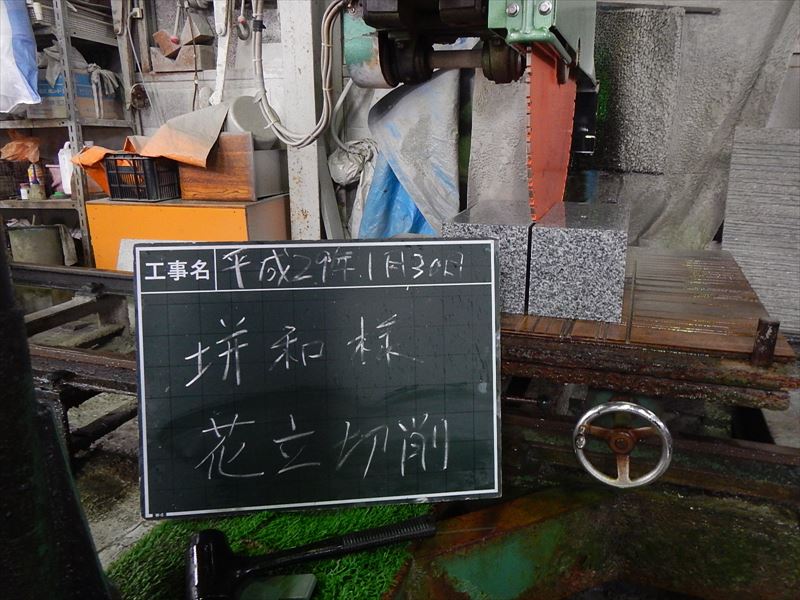 工事名 平成29年1月30日
垪和様
花立切削